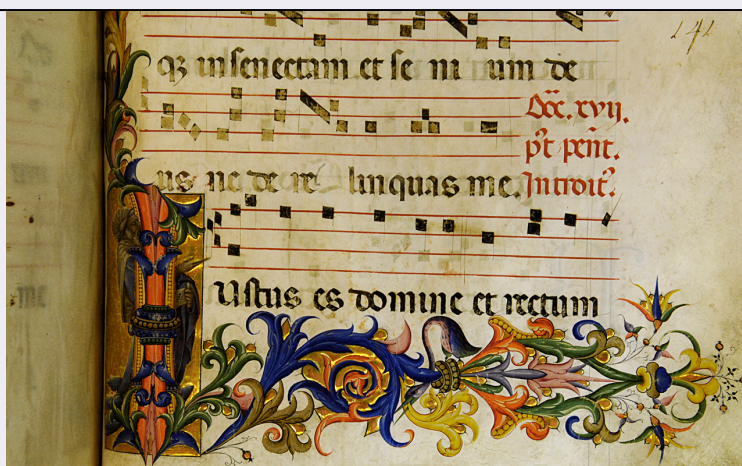 q3 in senectam et se ni um de
Dōc. xvij.
p't pent.
us ne dere linquas me. Introit'.
Iustus es domine et rectum